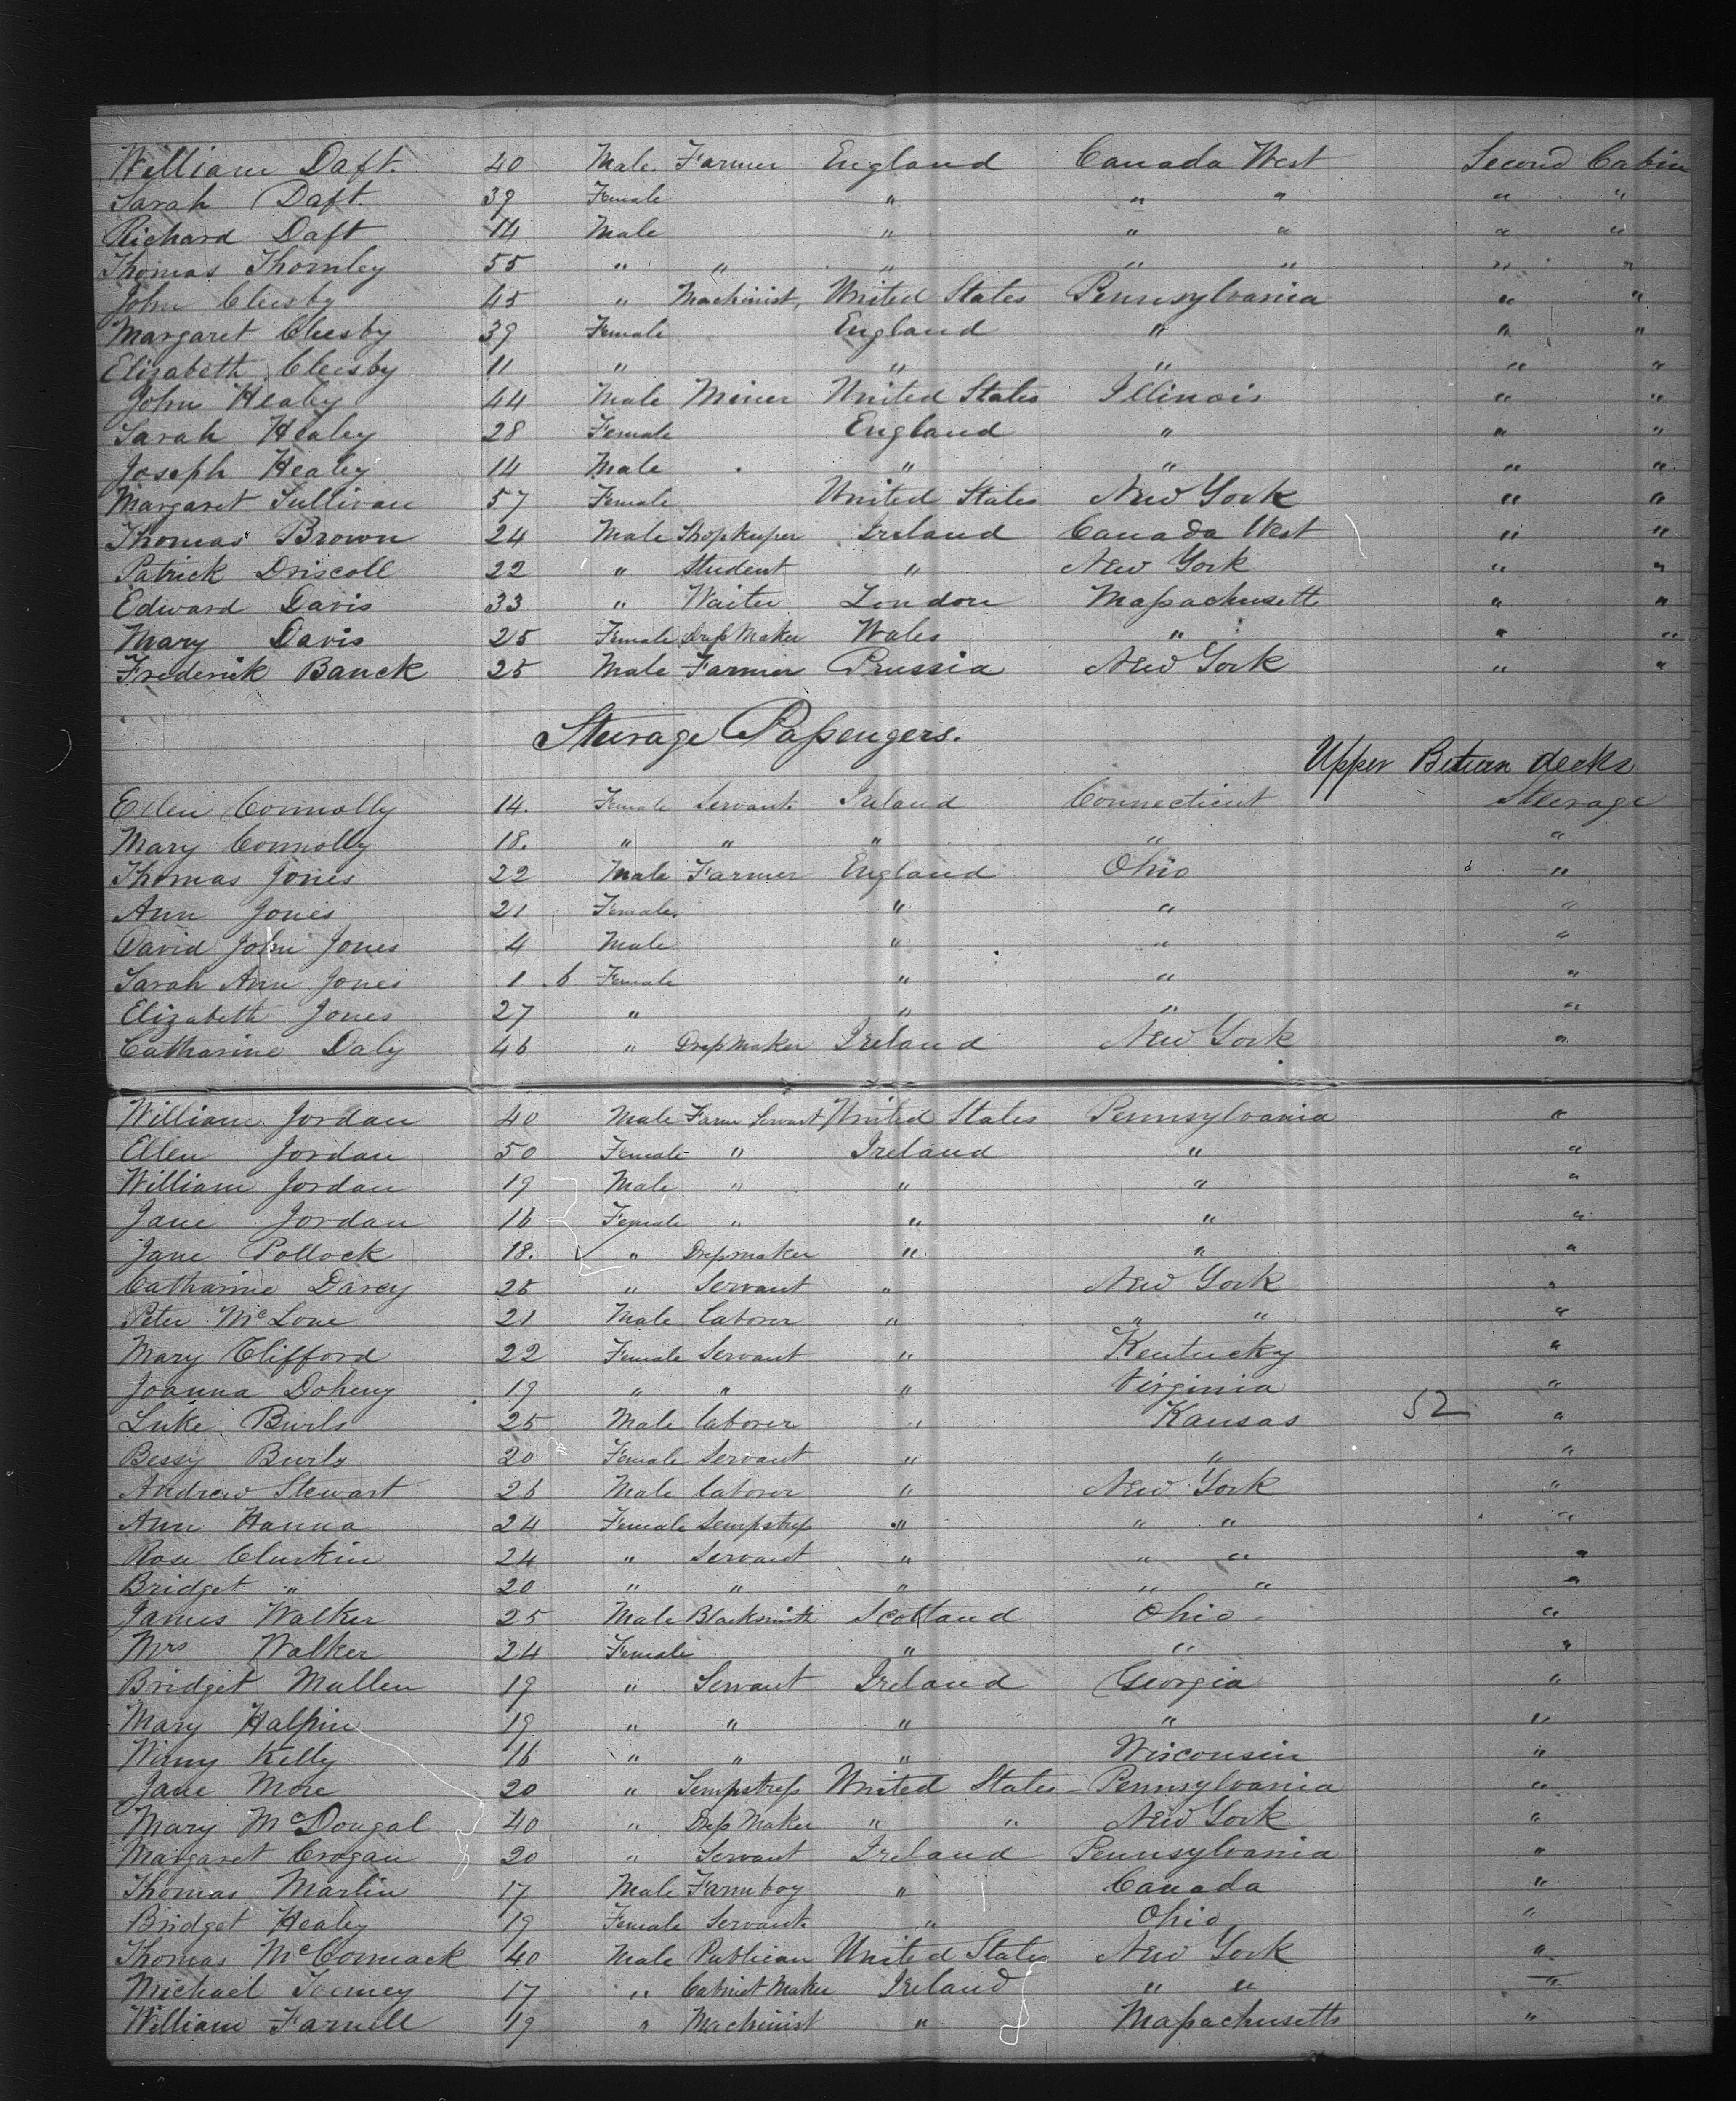 William Daft. 40 Male. Farmer England Canada West Second Cabin
Sarah Daft. 39 Female " " " " "
Richard Daft 14 Male " " " " "
Thomas Thornley 55 " " " " " " "
John Cleesby 45 " Machinist, United States Pennsylvania " "
Margaret Cleesby 39 Female England " " "
Elizabeth Cleesby 11 " " " " "
John Healey 44 Male Miner United States Illinois " "
Sarah Healey 28 Female England " " "
Joseph Healey 14 Male " " " "
Margaret Sullivan 57 Female United States New York " "
Thomas Brown 24 Male Shopkeeper Ireland Canada West " "
Patrick Driscoll 22 " Student " New York " "
Edward Davis 33 " Waiter London Massachusetts " "
Mary Davis 25 Female Dress Maker Wales " " "
Frederick Banck 25 Male Farmer Prussia New York " "
Steerage Passengers.
Upper Between decks
Ellen Connolly 14. Female Servant Ireland Connecticut Steerage
Mary Connolly 18. " " " " "
Thomas Jones 22 Male Farmer England Ohio "
Ann Jones 21 Female " " "
David John Jones 4 Male " " "
Sarah Ann Jones 1.6 Female " " "
Elizabeth Jones 27 " " " "
Catharine Daly 46 " Dressmaker Ireland New York "
William Jordan 40 Male Farm Servant United States Pennsylvania "
Ellen Jordan 50 Female " Ireland " "
William Jordan 19 Male " " " "
Jane Jordan 16 Female " " " "
Jane Pollock 18. " Dressmaker " " "
Catharine Darcy 25 " Servant " New York "
Peter McLone 21 Male laborer " " " "
Mary Clifford 22 Female Servant " Kentucky "
Joanna Doheny 19 " " " Virginia "
Luke Burls 25 Male laborer " Kansas 52 "
Bessy Burls 20 Female Servant " " "
Andrew Stewart 26 Male laborer " New York "
Ann Hanna 24 Female Sempstress " " " "
Rose Clurkin 24 " Servant " " " "
Bridget " 20 " " " " " "
James Walker 25 Male Blacksmith Scotland Ohio "
Mrs Walker 24 Female " " "
Bridget Mullen 19 " Servant Ireland Georgia "
Mary Halpin 19 " " " " "
Winny Kelly 16 " " " Wisconsin "
Jane More 20 " Sempstress United States Pennsylvania "
Mary McDougal 40 " Dress Maker " " New York "
Margaret Crogan 20 " Servant Ireland Pennsylvania "
Thomas Martin 17 Male Farm boy " Canada "
Bridget Healey 19 Female Servant " Ohio "
Thomas McCormack 40 Male Publican United States New York "
Michael Toomey 17 " Cabinet Maker Ireland " " "
William Farnell 19 " Machinist " Massachusetts "